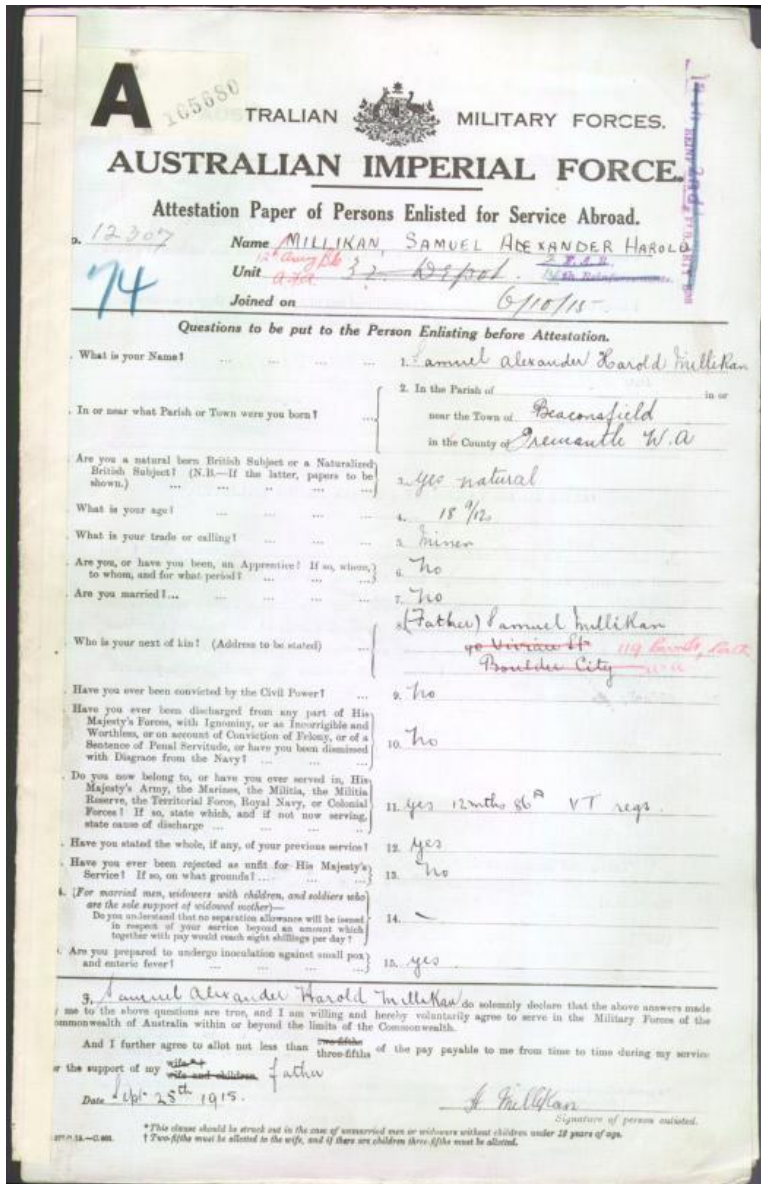 A
165680
TRALIAN MILITARY FORCES.
AUSTRALIAN IMPERIAL FORCE.
Attestation Paper of Persons Enlisted for Service Abroad.
o. 12307 Name MILLIKAN, SAMUEL ALEXANDER HAROLD
74
Unit 32 Depot.
Joined on 6/10/15
Questions to be put to the Person Enlisting before Attestation.
. What is your Name? ... ... ... ... 1. Samuel Alexander Harold Millikan
. In or near what Parish or Town were you born? ... 2. In the Parish of in or
near the Town of Beaconsfield
in the County of Fremantle W.A
. Are you a natural born British Subject or a Naturalized
British Subject? (N.B.—If the latter, papers to be
shown.) ... ... ... ... ... 3. yes natural
. What is your age? ... ... ... ... 4. 18 9/12
. What is your trade or calling? ... ... ... 5. Miner
. Are you, or have you been, an Apprentice? If so, whom,
to whom, and for what period? ... ... ... 6. No
. Are you married?... ... ... ... ... 7. No
. Who is your next of kin? (Address to be stated) ... 8. (Father) Samuel Millikan
90 Vivian St 119
Boulder City W.A
. Have you ever been convicted by the Civil Power? ... 9. No
. Have you ever been discharged from any part of His
Majesty's Forces, with Ignominy, or as Incorrigible and
Worthless, or on account of Conviction of Felony, or of a
Sentence of Penal Servitude, or have you been dismissed
with Disgrace from the Navy? ... ... ... 10. No
. Do you now belong to, or have you ever served in, His
Majesty's Army, the Marines, the Militia, the Militia
Reserve, the Territorial Force, Royal Navy, or Colonial
Forces? If so, state which, and if not now serving,
state cause of discharge ... ... ... 11. yes 12 mths 86A VT regs.
. Have you stated the whole, if any, of your previous service? 12. yes
. Have you ever been rejected as unfit for His Majesty's
Service? If so, on what grounds? ... ... ... 13. No
4. (For married men, widowers with children, and soldiers who
are the sole support of widowed mother)—
Do you understand that no separation allowance will be issued
in respect of your service beyond an amount which
together with pay would reach eight shillings per day? 14. –
. Are you prepared to undergo inoculation against small pox
and enteric fever? ... ... ... ... 15. yes
I, Samuel Alexander Harold Millikan do solemnly declare that the above answers made
y me to the above questions are true, and I am willing and hereby voluntarily agree to serve in the Military Forces of the
ommonwealth of Australia within or beyond the limits of the Commonwealth.
And I further agree to allot not less than two-fifths three-fifths of the pay payable to me from time to time during my service
or the support of my wife wife and children. father
Date Sept 25th 1915. H Millikan
Signature of person enlisted.
*This clause should be struck out in the case of unmarried men or widowers without children under 18 years of age.
† Two-fifths must be allotted to the wife, and if there are children three-fifths must be allotted.